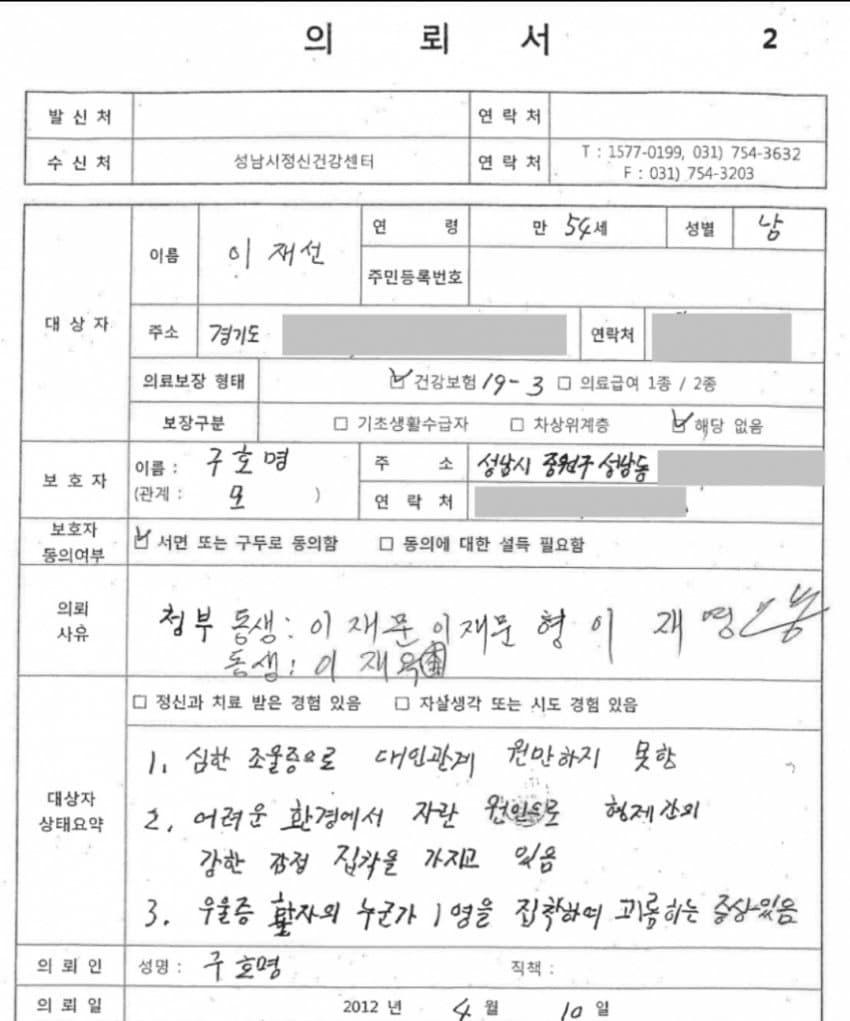 의 뢰 서 2
발 신 처 연 락 처
수 신 처 성남시정신건강센터 연 락 처 T : 1577-0199, 031) 754-3632
F : 031) 754-3203
대 상 자 이름 이 재선 연 령 만 54세 성별 남
주민등록번호
주소 경기도 연락처
의료보장 형태 ☑ 건강보험 19-3 □ 의료급여 1종 / 2종
보장구분 □ 기초생활수급자 □ 차상위계층 ☑ 해당 없음
보 호 자 이름 : 구호명 주 소 성남시 중원구 성남동
(관계 : 모 ) 연 락 처
보호자
동의여부 ☑ 서면 또는 구두로 동의함 □ 동의에 대한 설득 필요함
의뢰
사유 첨부 동생: 이 재문 이재문 형 이 재 영
동생: 이 재옥
□ 정신과 치료 받은 경험 있음 □ 자살생각 또는 시도 경험 있음
대상자
상태요약
1. 심한 조울증으로 대인관계 원만하지 못함
2. 어려운 환경에서 자란 원인으로 형제간의
강한 감정 집착을 가지고 있음
3. 우울증 환자의 누군가 1명을 집착하며 괴롭하는 증상있음
의 뢰 인 성명 : 구호명 직책 :
의 뢰 일 2012 년 4 월 10 일